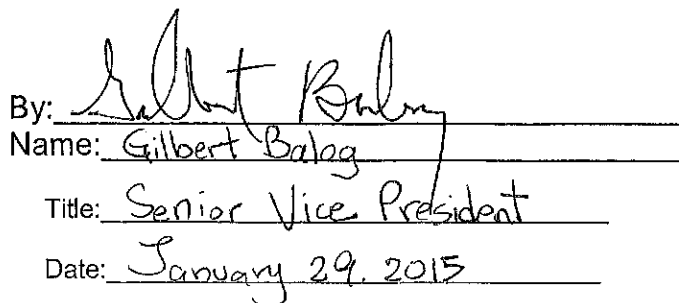 By: Gilbert Balog
Name: Gilbert Balog
Title: Senior Vice President
Date: January 29. 2015